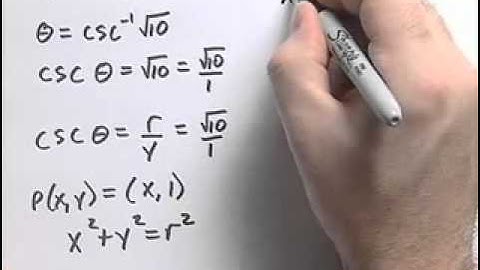 θ = csc⁻¹ √10
csc θ = √10 = √10/1
csc θ = r/y = √10/1
P(x,y) = (x, 1)
x² + y² = r²
Sharpie